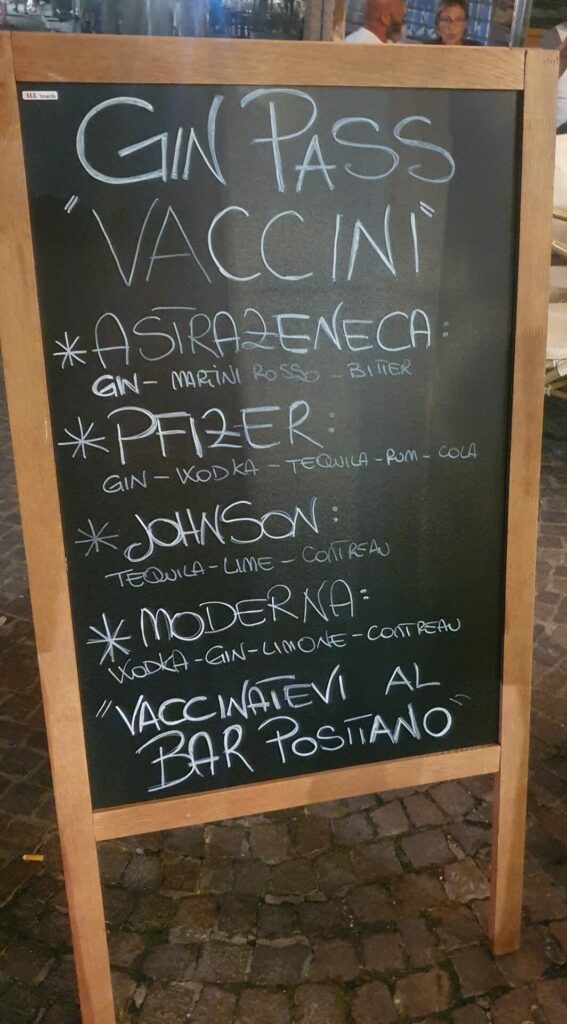 GIN PASS
"VACCINI"
* ASTRAZENECA:
GIN - MARTINI ROSSO - BITTER
* PFIZER:
GIN - WODKA - TEQUILA - RUM - COLA
* JOHNSON:
TEQUILA - LIME - COITREAU
* MODERNA:
WODKA - GIN - LIMONE - COITREAU
"VACCINATEVI AL
BAR POSITANO"